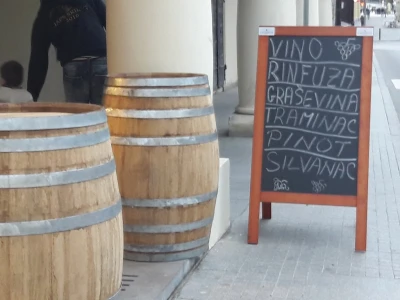 VINO
RINFUZA
GRAŠEVINA
TRAMINAC
PINOT
SILVANAC